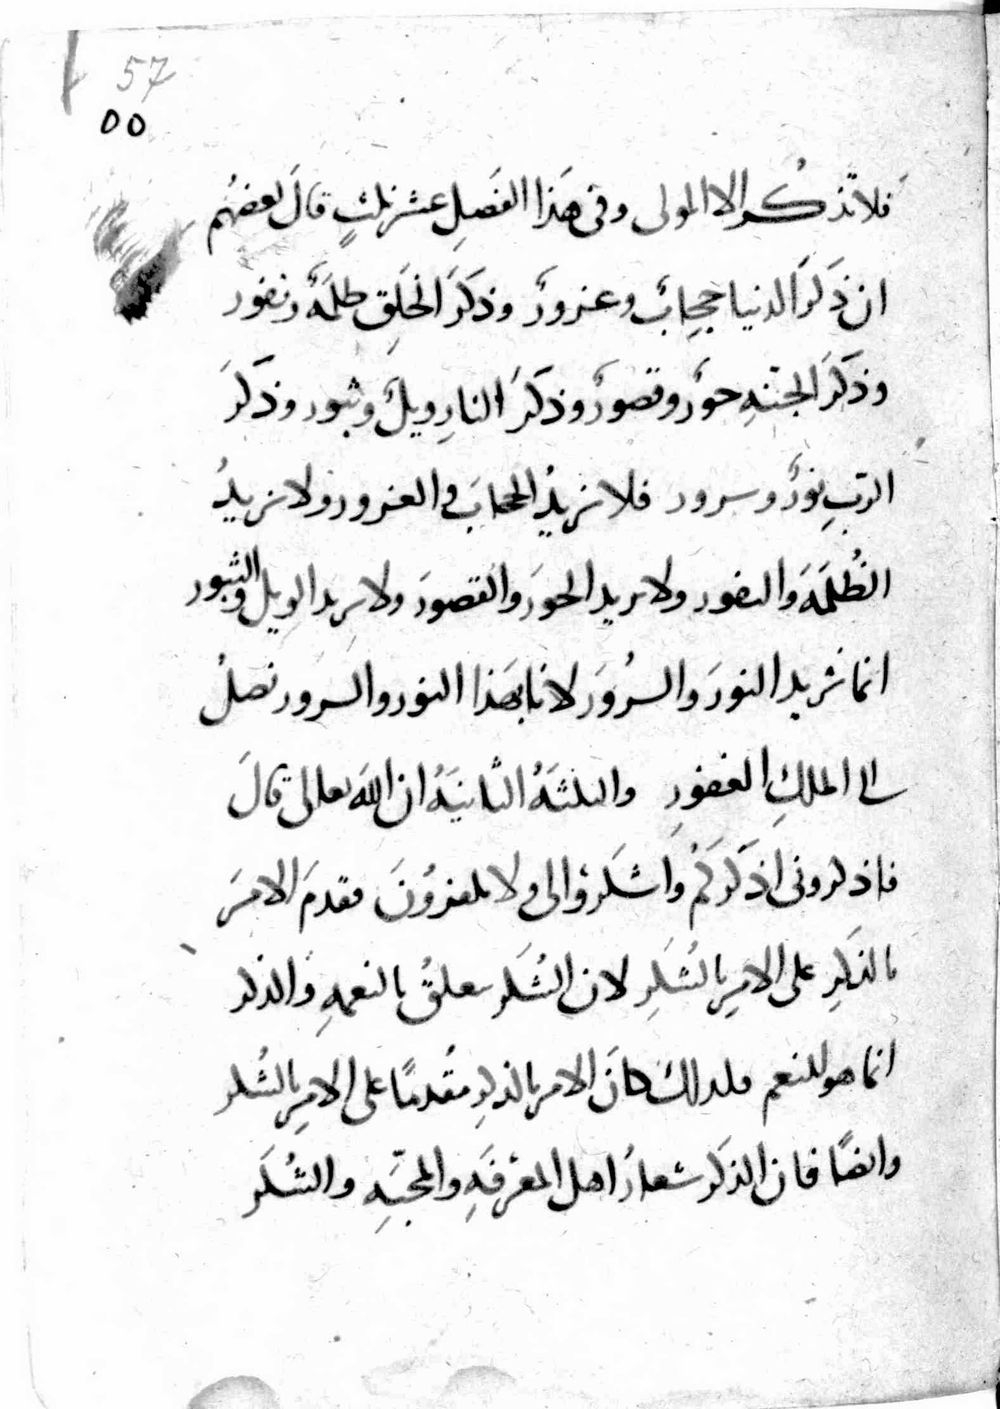 57
٥٥
فلا تذكر الا المولى وفى هذا الفصل عشر نكت قال بعضهم
ان ذكر الدنيا حجاب وغرور وذكر الخلق ظلمة ونفور
وذكر الجنه حور وقصور وذكر النار ويل وثبور وذكر
الرب نور وسرور فلا نريد الحجاب و الغرور ولا نريد
الظلمة والنفور ولا نريد الحور والقصور ولا نريد الويل والثبور
انما نريد النور والسرور لانا بهذا النور والسرور نصل
الى الملك الغفور والنكتة الثانية ان الله تعالى قال
فاذكرونى اذكركم واشكروا لى ولا تكفرون فقدم الامر
بالذكر على الامر بالشكر لان الشكر يتعلق بالنعمه والذكر
انما هو للنعم فلذلك كان الامر بالذكر مقدما على الامر بالشكر
وايضا فان الذكر شعار اهل المعرفه والمحبه والشكر